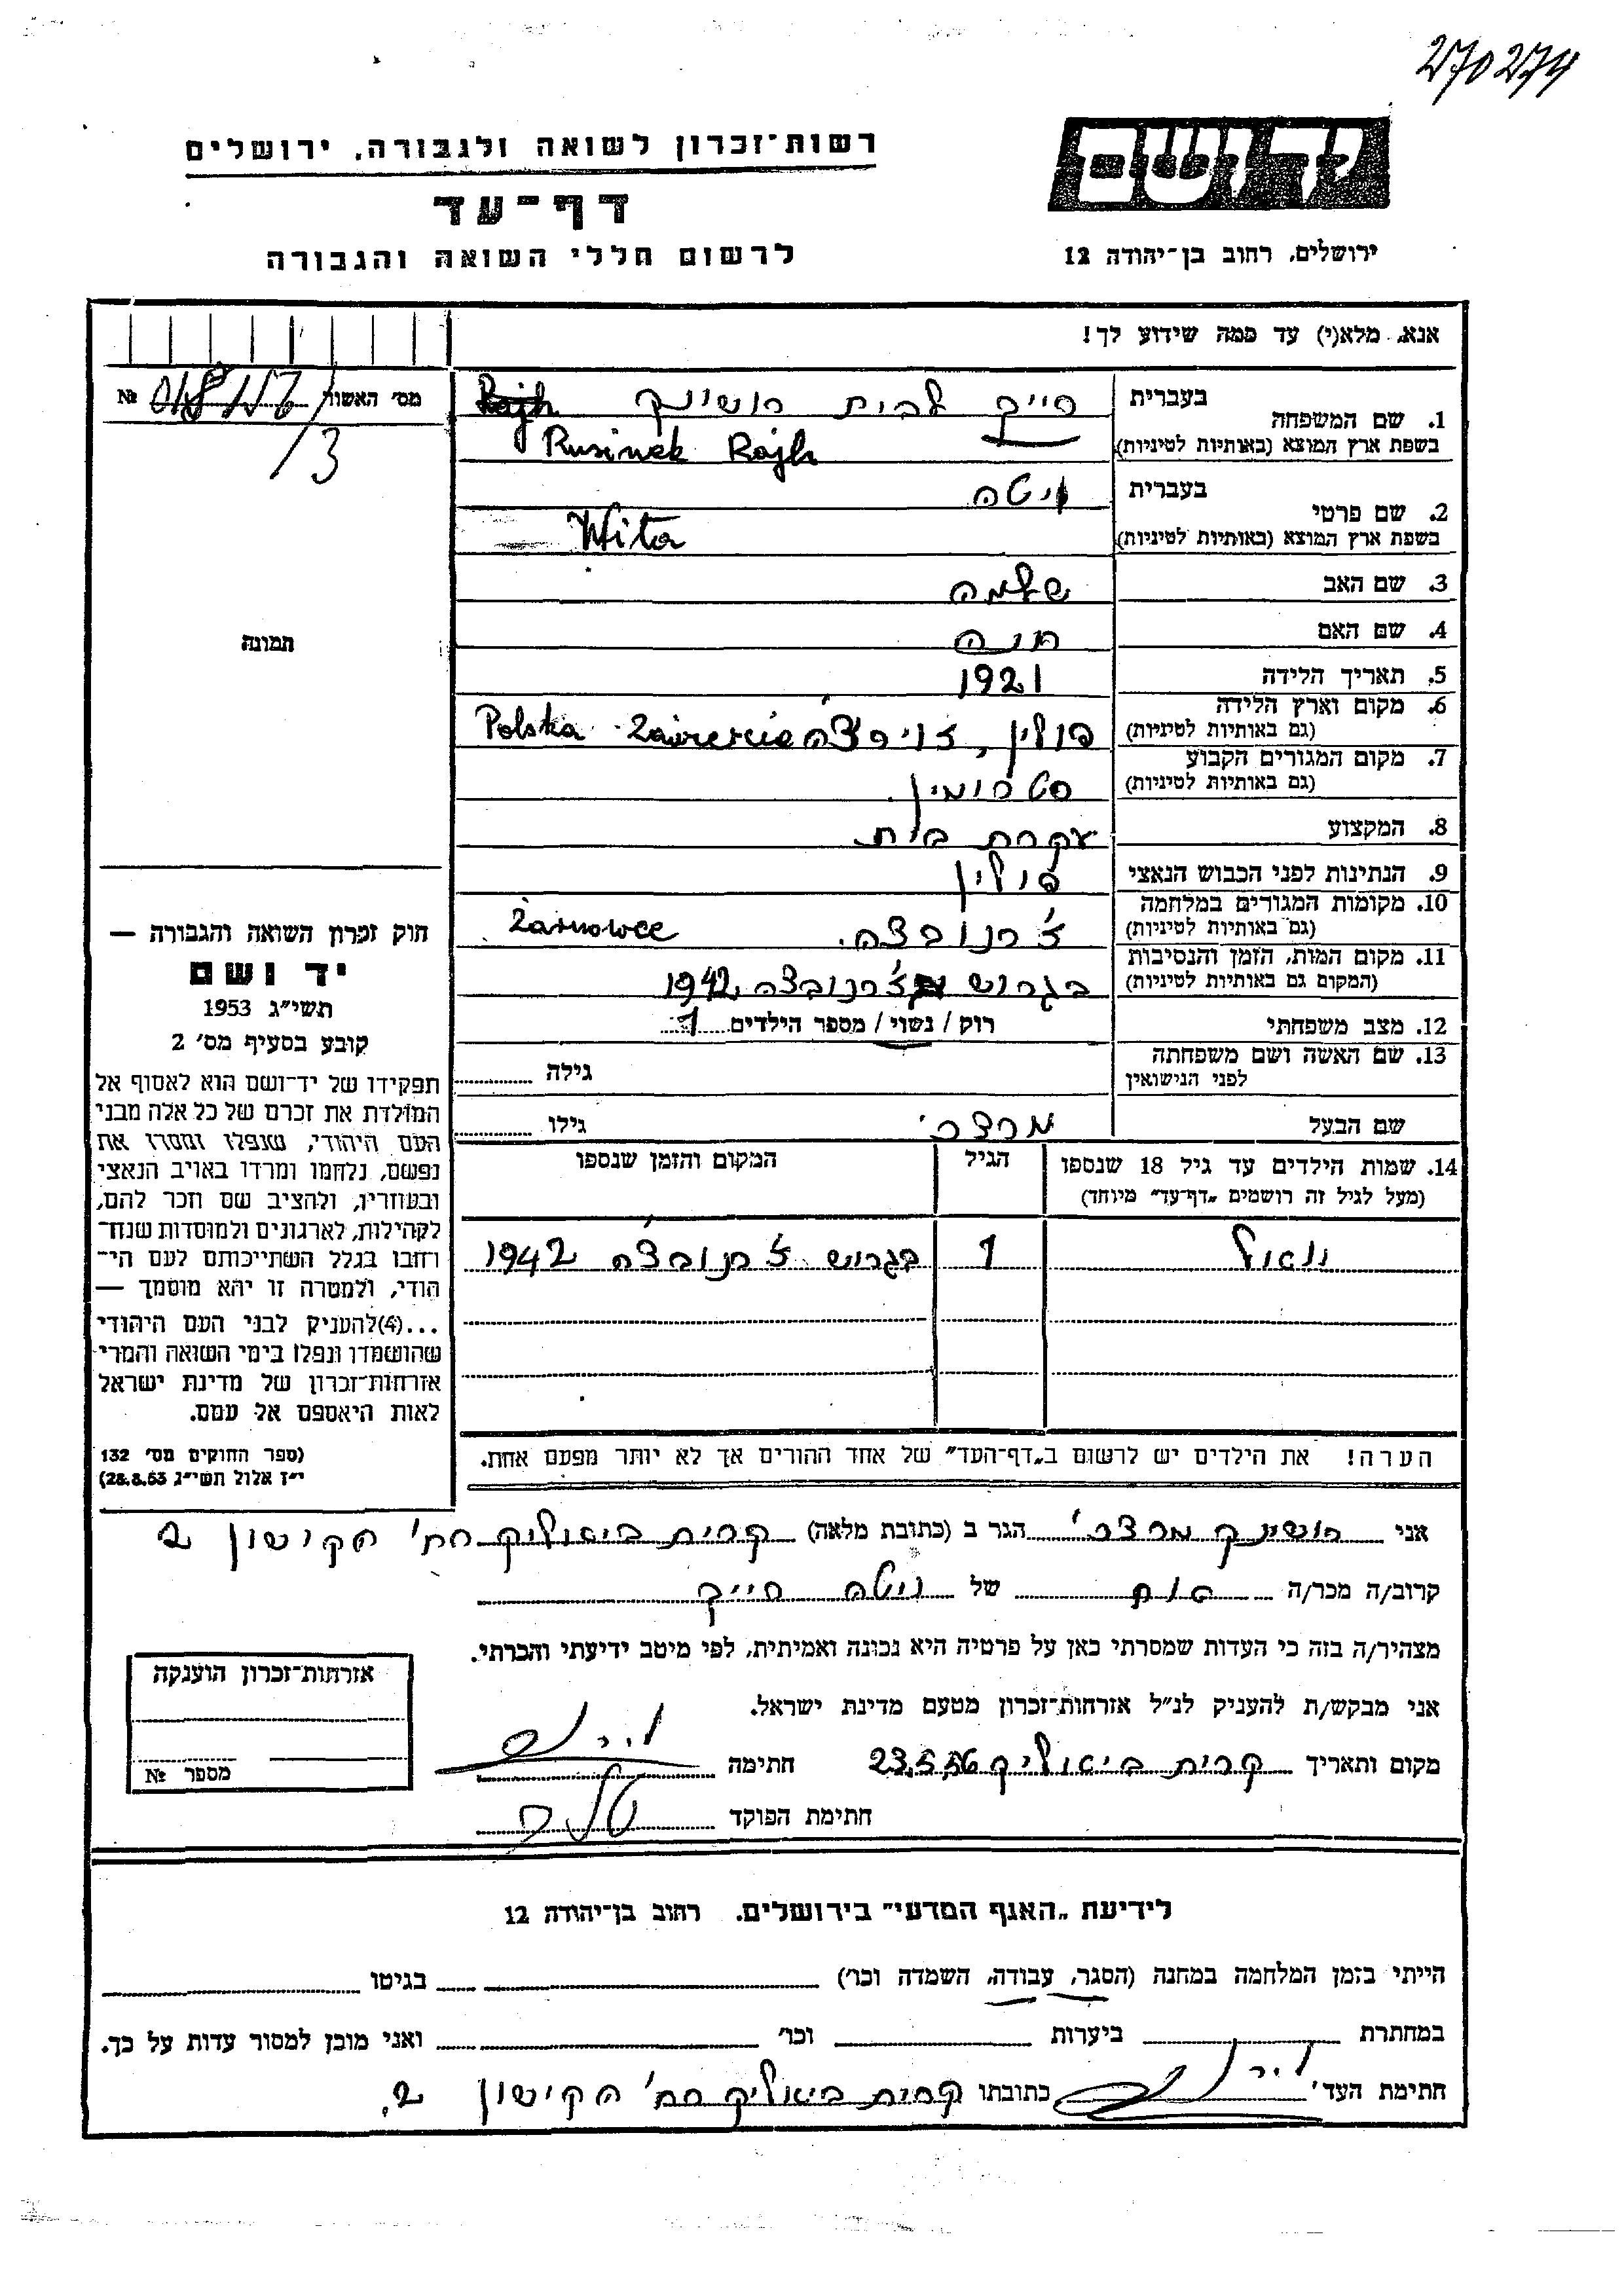 270274
יד ושם
רשות־זכרון לשואה ולגבורה, ירושלים
דף־עד
לרשום חללי השואה והגבורה
ירושלים, רחוב בן־יהודה 12
אנא, מלא(י) עד כמה שידוע לך!
מס' האשור №
/3
בעברית
1. שם המשפחה
בשפת ארץ המוצא (באותיות לטיניות)
רייך לבית רושינק Rajh
Rusinek Rajh
בעברית
2. שם פרטי
בשפת ארץ המוצא (באותיות לטיניות)
ויטה
Wita
3. שם האב שלמה
4. שם האם חנה
5. תאריך הלידה 1921
6. מקום וארץ הלידה
(גם באותיות לטיניות)
פולין, זוירצה Zawiercie Polska
7. מקום המגורים הקבוע
(גם באותיות לטיניות)
8. המקצוע עקרת בית
9. הנתינות לפני הכבוש הנאצי פולין
10. מקומות המגורים במלחמה
(גם באותיות לטיניות)
ז'רנובצה. Żarnowce
11. מקום המות, הזמן והנסיבות
(המקום גם באותיות לטיניות)
בגרוש ז'רנובצה 1942
12. מצב משפחתי רוק / נשוי / מספר הילדים 1
13. שם האשה ושם משפחתה
לפני הנישואין
גילה
שם הבעל גילו
14. שמות הילדים עד גיל 18 שנספו
(מעל לגיל זה רושמים „דף־עד" מיוחד)
הגיל
המקום והזמן שנספו
1 בגרוש ז'רנובצה 1942
הערה! את הילדים יש לרשום ב„דף־העד" של אחד ההורים אך לא יותר מפעם אחת.
תמונה
חוק זכרון השואה והגבורה —
יד ושם
תשי"ג 1953
קובע בסעיף מס' 2
תפקידו של יד־ושם הוא לאסוף אל
המולדת את זכרם של כל אלה מבני
העם היהודי, שנפלו ומסרו את
נפשם, נלחמו ומרדו באויב הנאצי
ובעוזריו, ולהציב שם וזכר להם,
לקהילות, לארגונים ולמוסדות שנח־
רחבו בגלל השתייכותם לעם הי־
הודי, ולמטרה זו יהא מוסמך —
...(4)להעניק לבני העם היהודי
שהושמדו ונפלו בימי השואה והמרי
אזרחות־זכרון של מדינת ישראל
לאות היאספם אל עמם.
(ספר החוקים מס' 132
י"ז אלול תשי"ג 28.8.53)
אני רושינק הגר ב (כתובת מלאה) קרית ביאליק רח' הקישון 2
קרוב/ה מכר/ה אח של ויטה רייך
מצהיר/ה בזה כי העדות שמסרתי כאן על פרטיה היא נכונה ואמיתית, לפי מיטב ידיעתי והכרתי.
אני מבקש/ת להעניק לנ"ל אזרחות־זכרון מטעם מדינת ישראל.
מקום ותאריך קרית ביאליק 23.5.56 חתימה
חתימת הפוקד
אזרחות־זכרון הוענקה
מספר №
לידיעת „האגף המדעי" בירושלים, רחוב בן־יהודה 12
הייתי בזמן המלחמה במחנה (הסגר, עבודה, השמדה וכו') בגיטו
במחתרת ביערות וכו' ואני מוכן למסור עדות על כך.
חתימת העד כתובתו קרית ביאליק רח' הקישון 2.